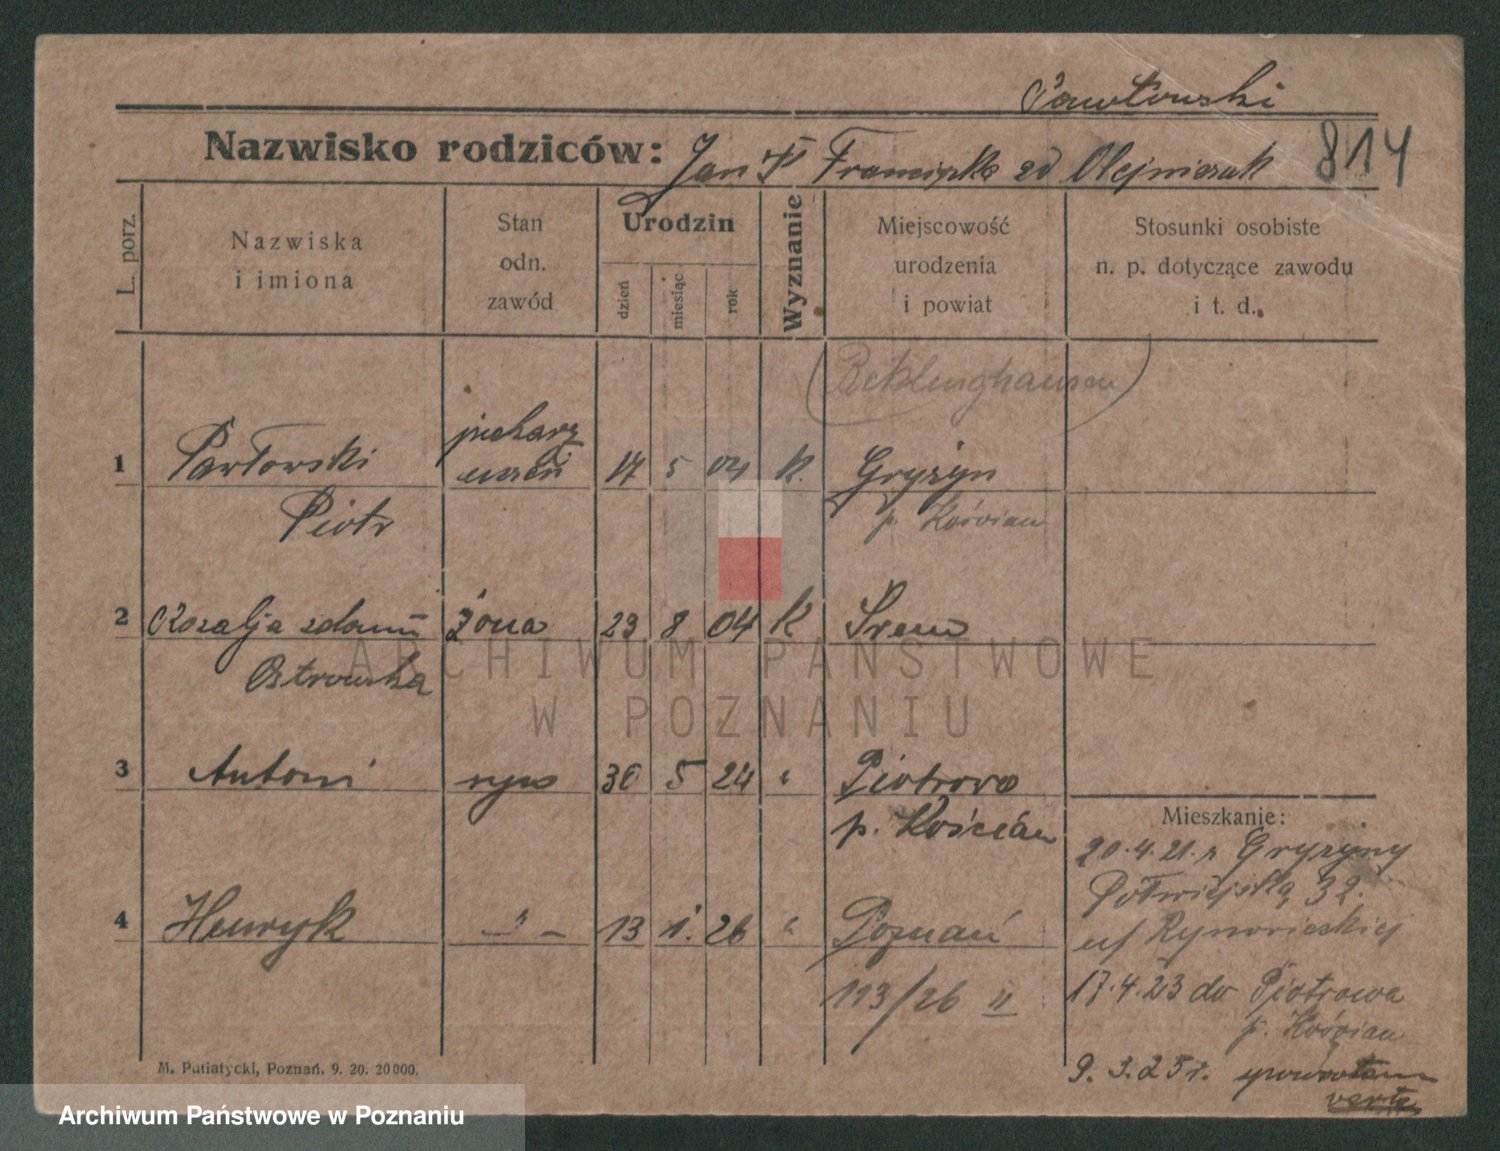 Pawłowski
Nazwisko rodziców: Jan i Franciszka zd Olejniczak 814
L. porz.
Nazwiska
i imiona
Stan
odn.
zawód
Urodzin
dzień
miesiąc
rok
Wyznanie
Miejscowość
urodzenia
i powiat
Stosunki osobiste
n. p. dotyczące zawodu
i t. d.
(Recklinghausen)
piekarz
1 Pawłowski uczeń 17 5 04 k. Gryżyn
Piotr p. Kościan
2 Rozalja z domu żona 29 8 04 k Śrem
Ostrowska
3 Antoni syn 30 5 24 " Piotrowo
p. Kościan
4 Henryk " 13 1. 26 " Poznań
193/26 II
Mieszkanie:
20.4.21. z Gryżyny
Półwiejska 32.
17.4.23 do Piotrowa
p. Kościan
9.3.25 r. z powrotem
verte
M. Putiatycki, Poznań. 9. 20. 20000.
ARCHIWUM PAŃSTWOWE
W POZNANIU
Archiwum Państwowe w Poznaniu